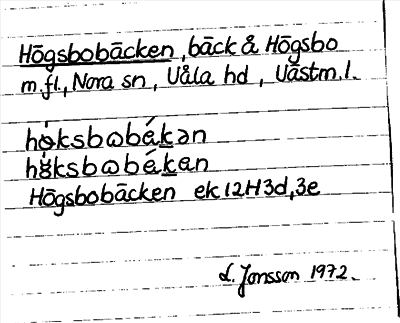 Högsbobäcken, bäck å Högsbo
m.fl., Nora sn, Våla hd, Västm.l.
hø̣ksbωbák̲ən
hø̣̈ksbωbák̲ɐn
Högsbobäcken ek 12H3d,3e
L. Jonsson 1972.